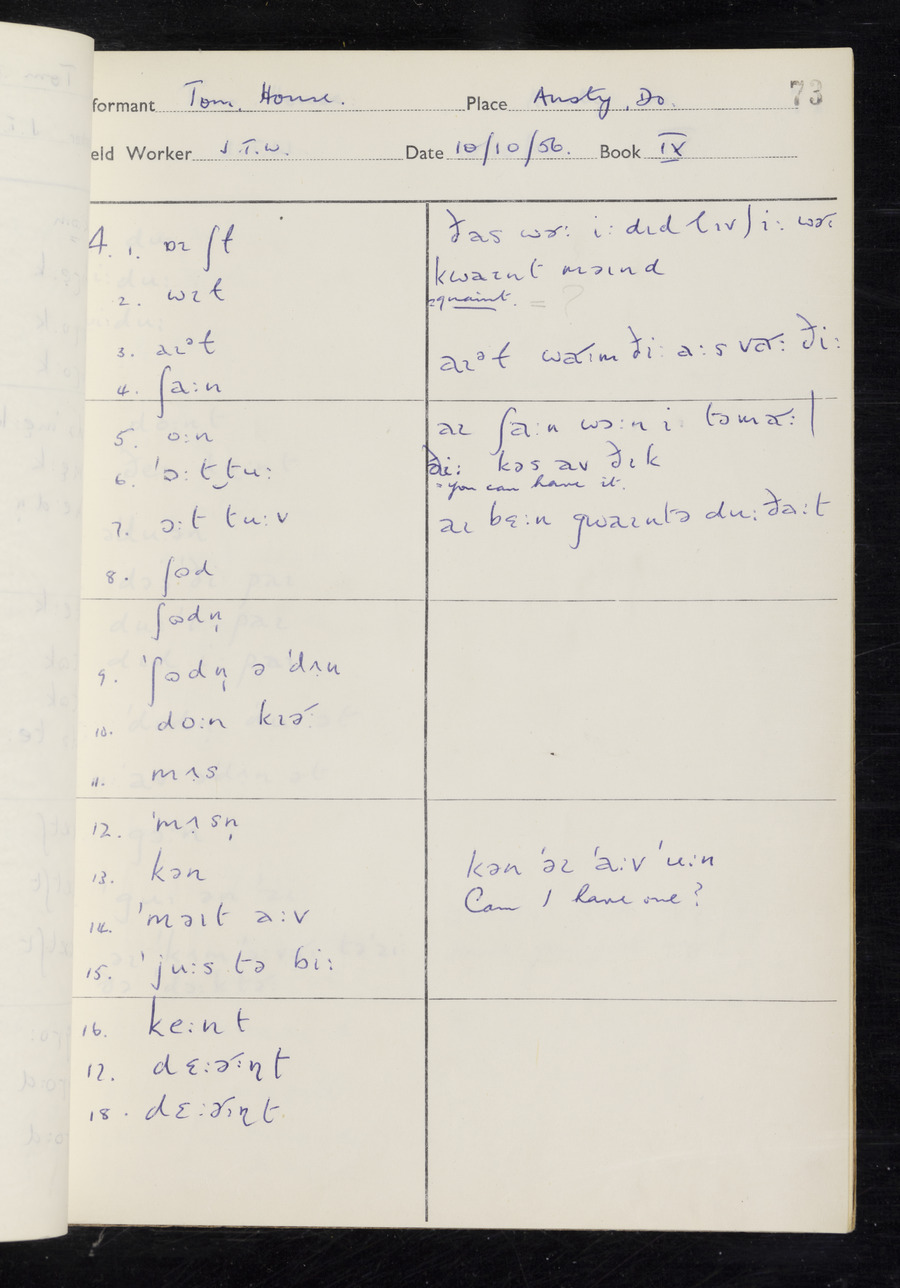 73
formant Tom. House. Place Ansty, Do.
eld Worker J.T.W. Date 10/10/56. Book IX
4. 1. ɒɪ ʃt
2. wɪt
3. aɪᵊt
4. ʃa:n
5. ɒ:n
6. ˈɔ:t‿tu:
7. ɔ:t tu:v
8. ʃɒd
ʃɒdn̩
9. ˈʃɒdn̩ ə ˈdʌn
10. dɒ:n kɪə
11. mʌs
12. ˈmʌsn̩
13. kən
14. ˈməɪt a:v
15. ˈju:s tə bi:
16. ke:nt
17. dɛ:ə:n̩t
18. dɛ:əɪn̩t
ðas wə: i: dɪd lɪv / i: wə:
kwaɪnt məɪnd
quaint. = ?
aɪᵊt waɪm ði: a:s və: ði:
aɪ ʃa:n wə:n i təmə: |
ði: kəs av ðɪk
= you can have it.
aɪ bɛ:n gwaɪntə du: ða:t
kən ˈəɪ ˈa:v ˈu:n
Can I have one?